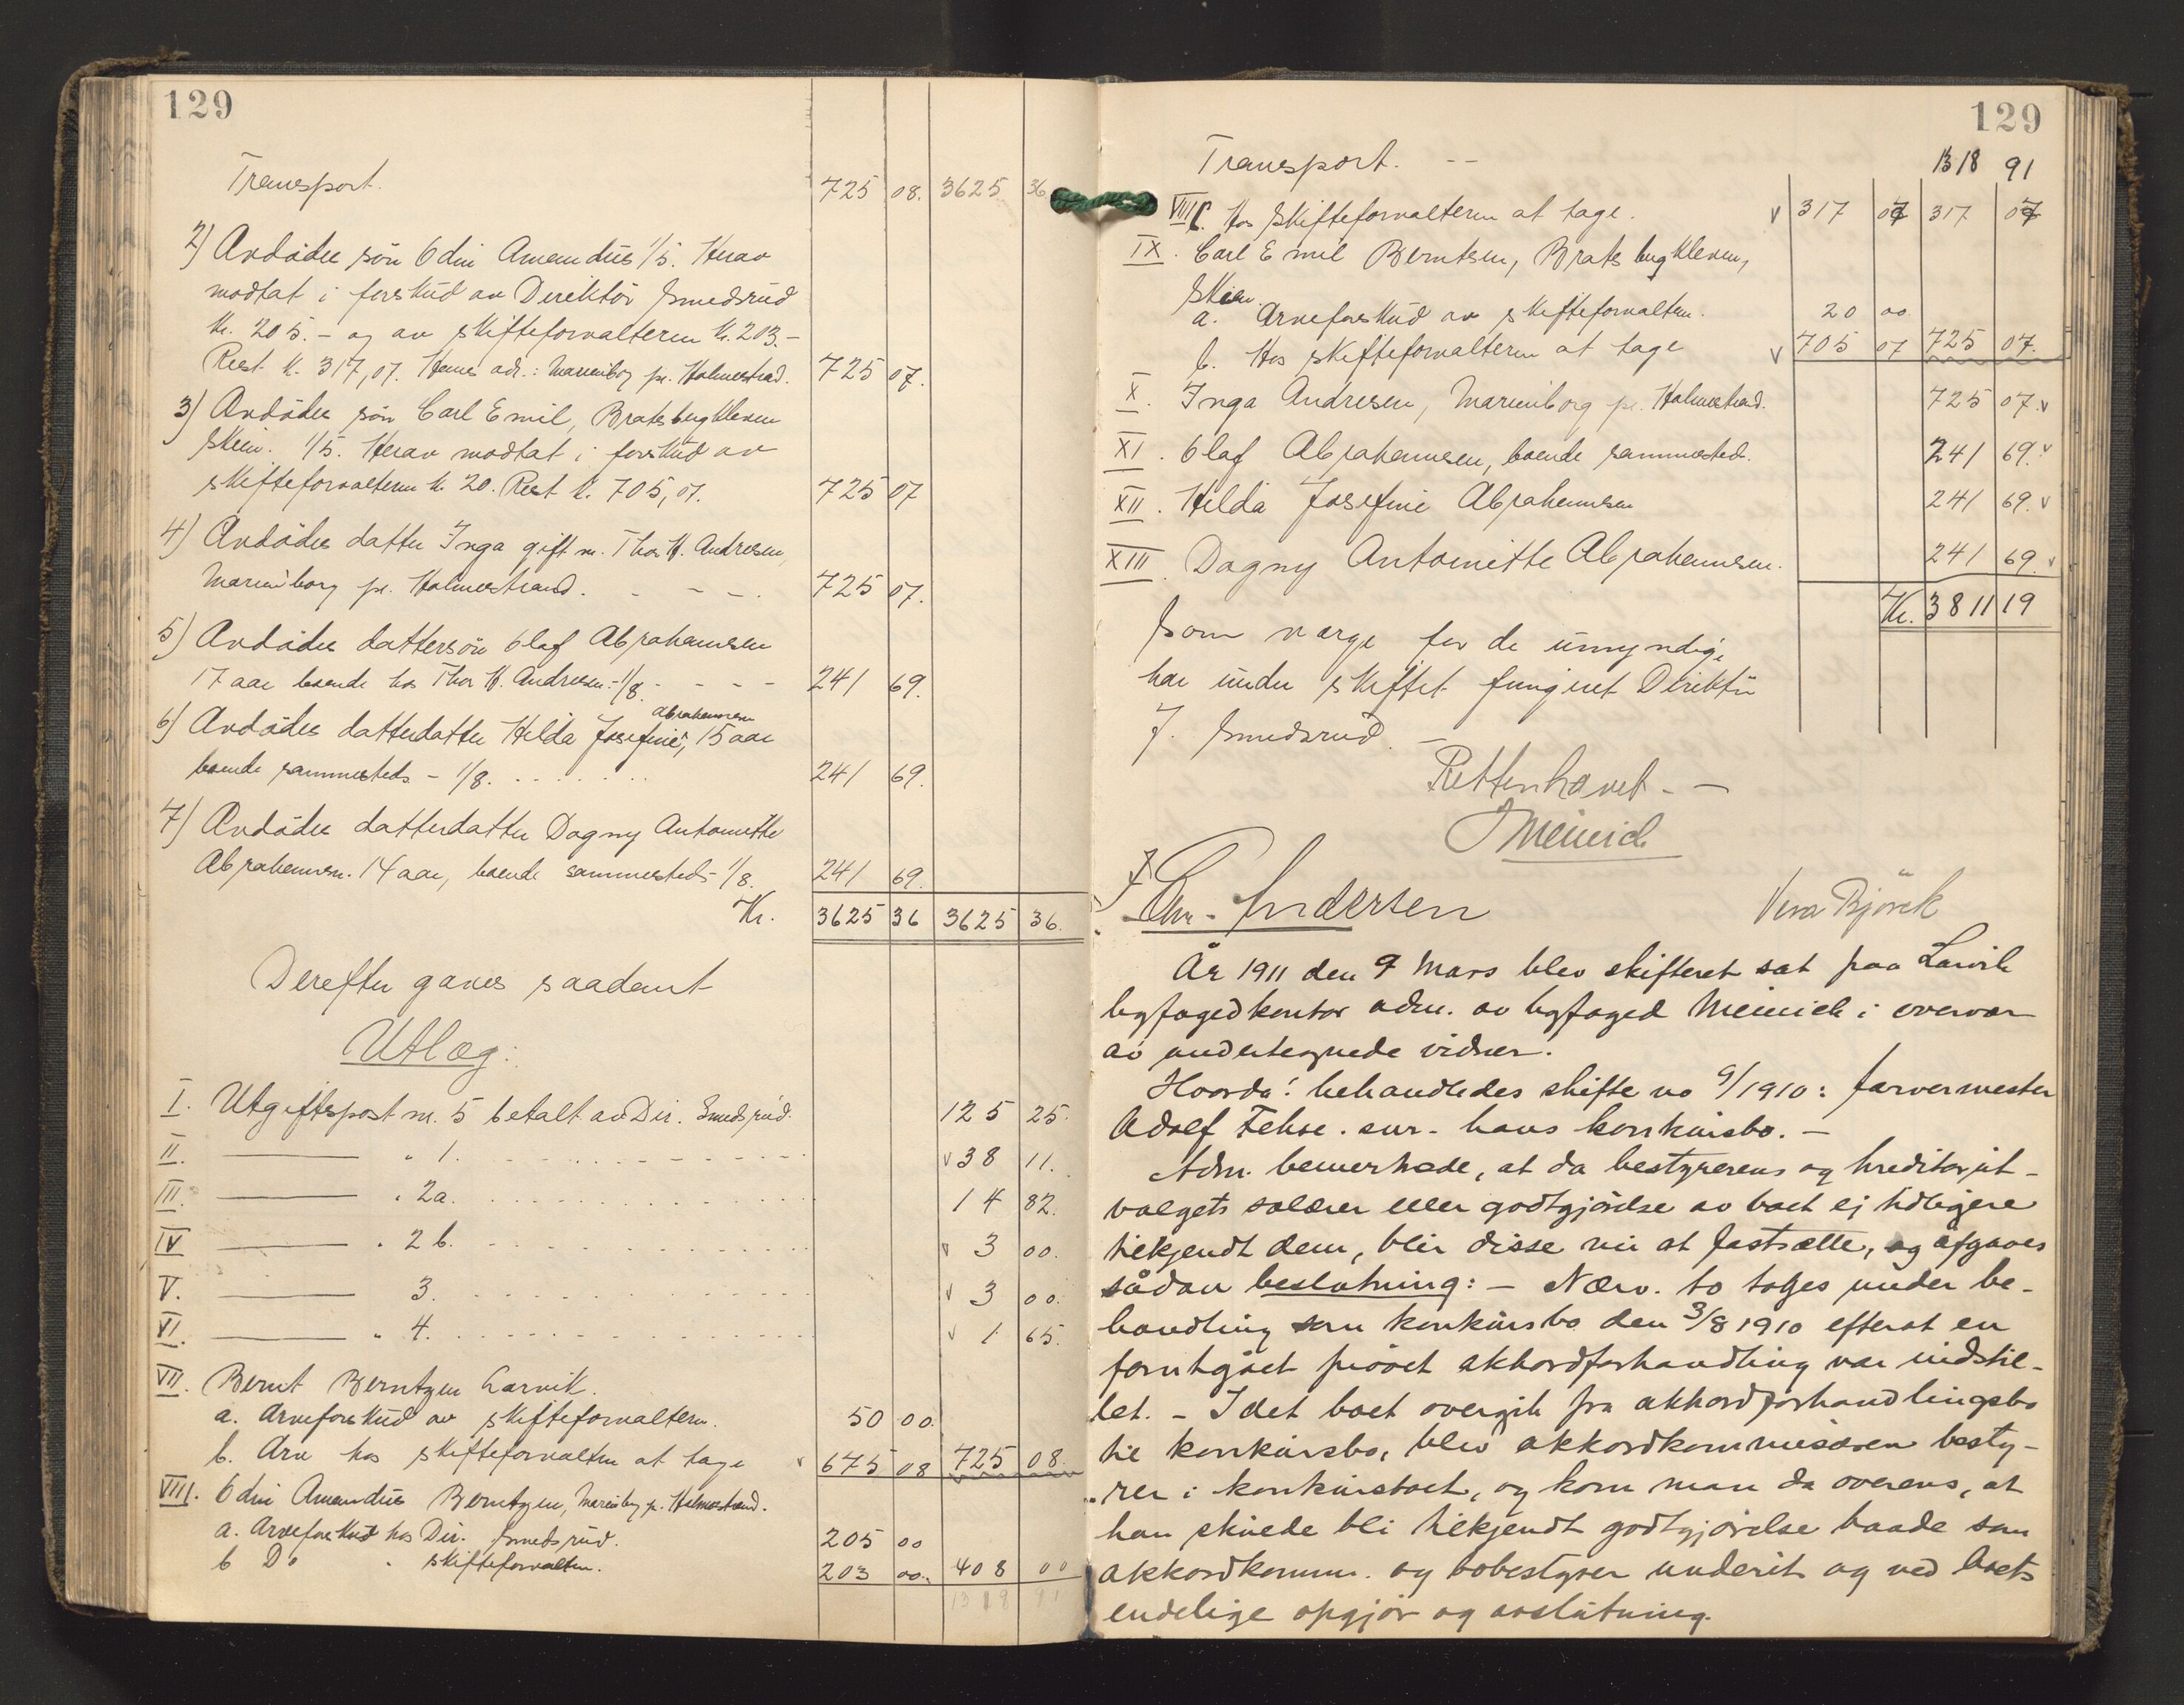 129
Transport. 725 08. 3625 36
2) Avdødes søn Odin Amandus 1/5. Herav
modtat i forskud av Direktör Smedsrud
kr. 205.- og av skifteforvalteren kr. 203.-
Rest k. 317,07. Hans adr.: Marienborg pr. Holmestrand. 725 07.
3) Avdødes søn Carl Emil, Bratsbergkleven
Skien. 1/5. Herav modtat i forskud av
skifteforvalteren k. 20. Rest k. 705,07. 725 07
4) Avdødes datter Inga gift m. Thor H. Andresen,
Marienborg pr. Holmestrand. - - - . 725 07.
5) Avdødes dattersøn Olaf Abrahamsen
17 aar boende hos Thor H. Andresen - 1/8 - - - - 241 69.
6) Avdødes datterdatter Hilda Josefine Abrahamsen, 15 aar
boende sammesteds - 1/8. . . . . . . . 241 69.
7) Avdødes datterdatter Dagny Antoinette
Abrahamsen. 14 aar, boende sammesteds 1/8. 241 69.
Kr. 3625 36 3625 36.
Derefter gaves saadant
Utlæg:
I. Utgiftspost nr. 5 betalt av Dir. Smedsrud. 125 25.
II. —— " 1. 38 11.
III. —— " 2a. 14 82.
IV —— " 2b. 3 00.
V. —— 3. 3 00.
VI. —— " 4. 1 65.
VII. Bernt Berntzen Larvik.
a. Arveforskud av skifteforvalteren. 50 00.
b. Arv hos skifteforvalteren at tage 675 08 725 08.
VIII. Odin Amandus Berntzen, Marienborg pr. Holmestrand.
a. Arveforskud hos Dir. Smedsrud. 205 00
b Do " skifteforvalteren. 203 00. 408 00
1318 91
129
Transport. -- 1318 91
VIII c. Hos Skifteforvalteren at tage. 317 07 317 07
IX. Carl Emil Berntsen, Bratsbergkleven,
Skien.
a. Arveforskud av skifteforvalteren. 20 00
b. Hos skifteforvalteren at tage 705 07 725 07.
X. Inga Andresen, Marienborg pr. Holmestrand. 725 07.
XI. Olaf Abrahamsen, boende sammesteds. 241 69.
XII. Hilda Josefine Abrahamsen 241 69.
XIII. Dagny Antoinette Abrahamsen. 241 69.
Kr. 3811 19
Som værge for de umyndige
har under skiftet fungeret Direktör
J. Smedsrud. -
Retten hævet. -
Meinich
Chr. Andersen Vera Björck
År 1911 den 9 Mars blev skifteret sat paa Larvik
byfogedkontor adm. av byfoged Meinich i overvær
av undertegnede vidner.
Hvorda: behandledes skifte no 9/1910: farvermester
Adolf Fehse. sen. hans konkursbo. -
Adm. bemerkede, at da bestyrerens og kreditorut-
valgets salærer eller godtgjørelse av boet ej tidligere
tilkjendt dem, blir disse nu at fastsætte, og afgaves
sådan beslutning: - Nærv. bo toges under be-
handling som konkursbo den 3/8 1910 efterat en
forutgået prøvet akkordforhandling var indstil-
let. - Idet boet overgik fra akkordforhandlingsbo
til konkursbo, blev akkordkommisæren besty-
rer i konkursboet, og kom man da overens, at
han skulde bli tilkjendt godtgjørelse baade som
akkordkomm. og bobestyrer underét og ved boets
endelige opgjør og avslutning.